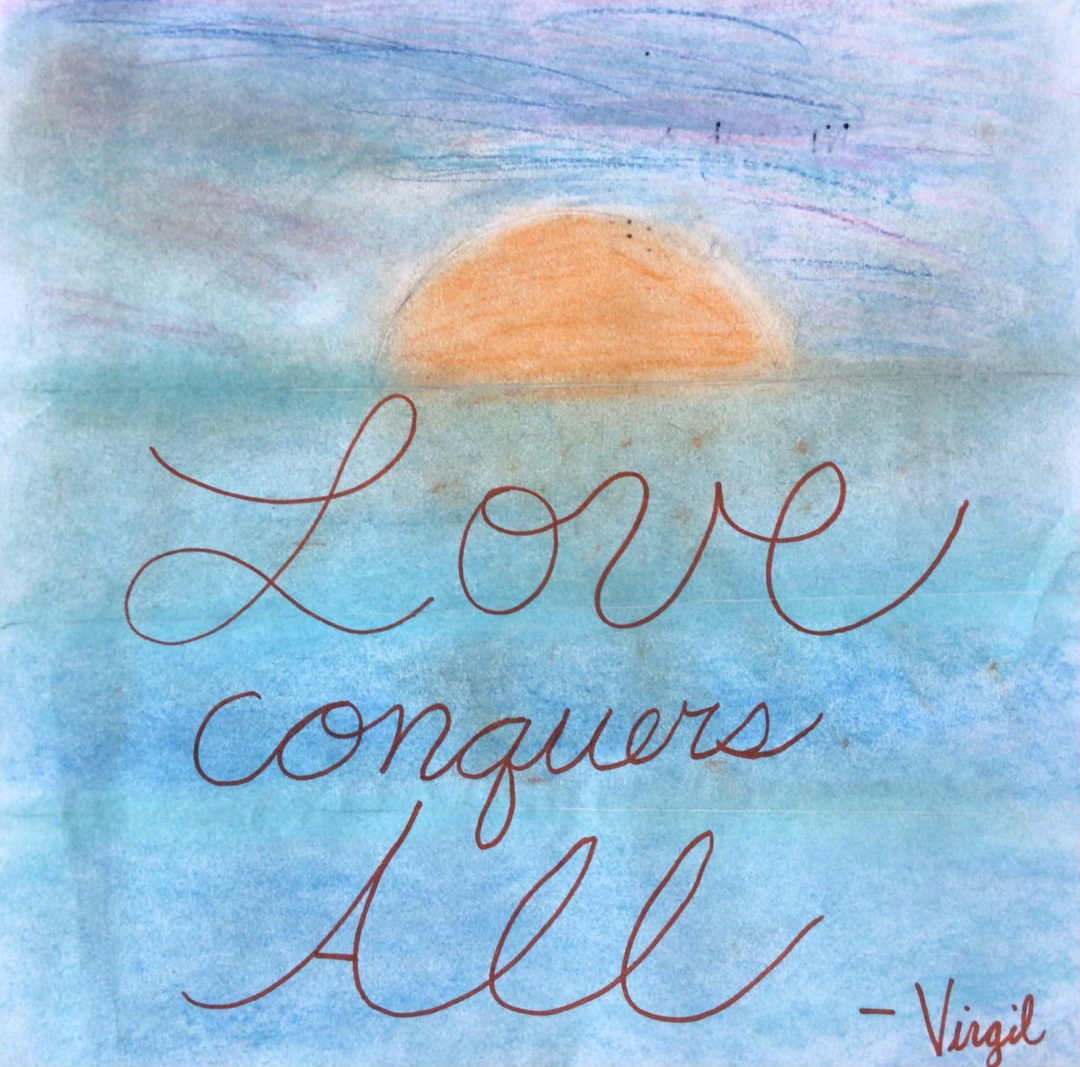 Love
conquers
All
- Virgil